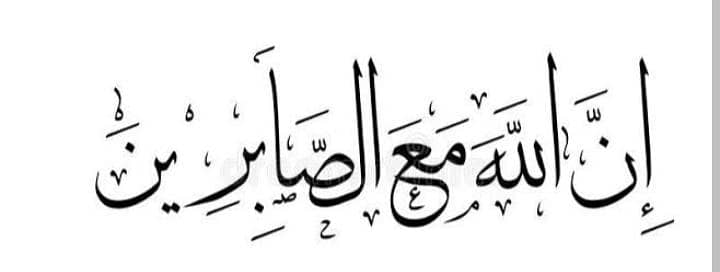 إِنَّ اللَّهَ مَعَ الصَّابِرِينَ